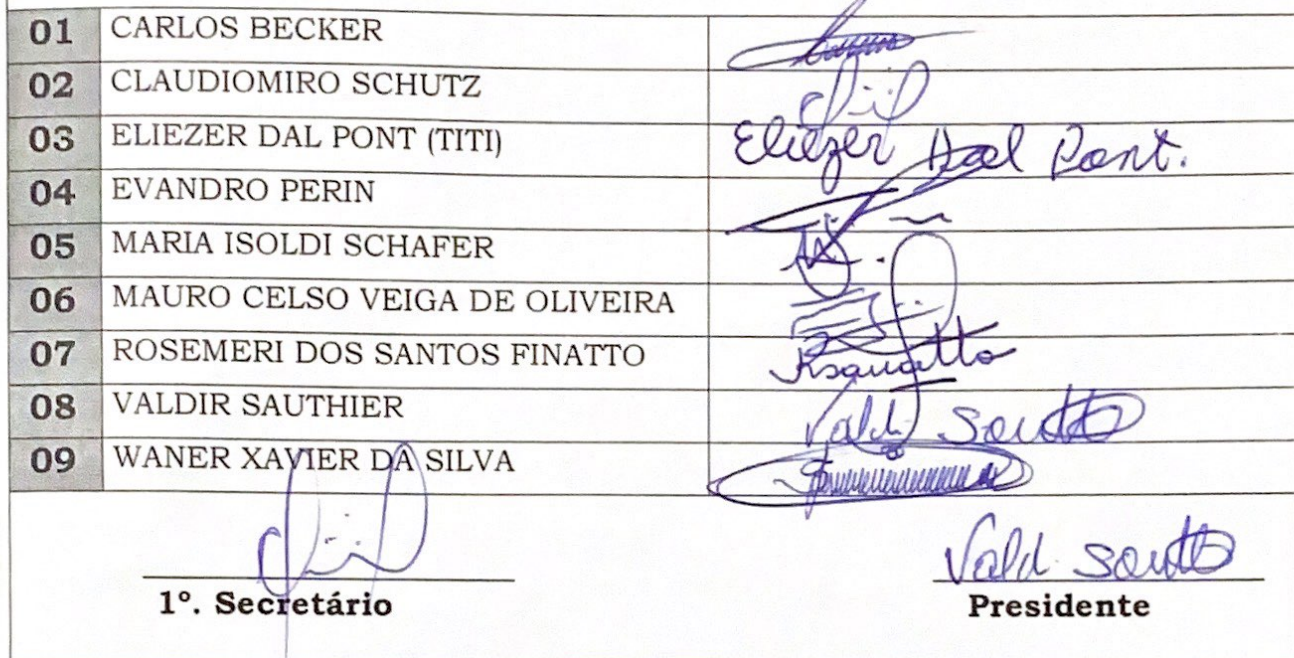 01 CARLOS BECKER
02 CLAUDIOMIRO SCHUTZ
03 ELIEZER DAL PONT (TITI) Eliezer Dal Pont.
04 EVANDRO PERIN
05 MARIA ISOLDI SCHAFER
06 MAURO CELSO VEIGA DE OLIVEIRA
07 ROSEMERI DOS SANTOS FINATTO
08 VALDIR SAUTHIER
09 WANER XAVIER DA SILVA
1º. Secretário Presidente